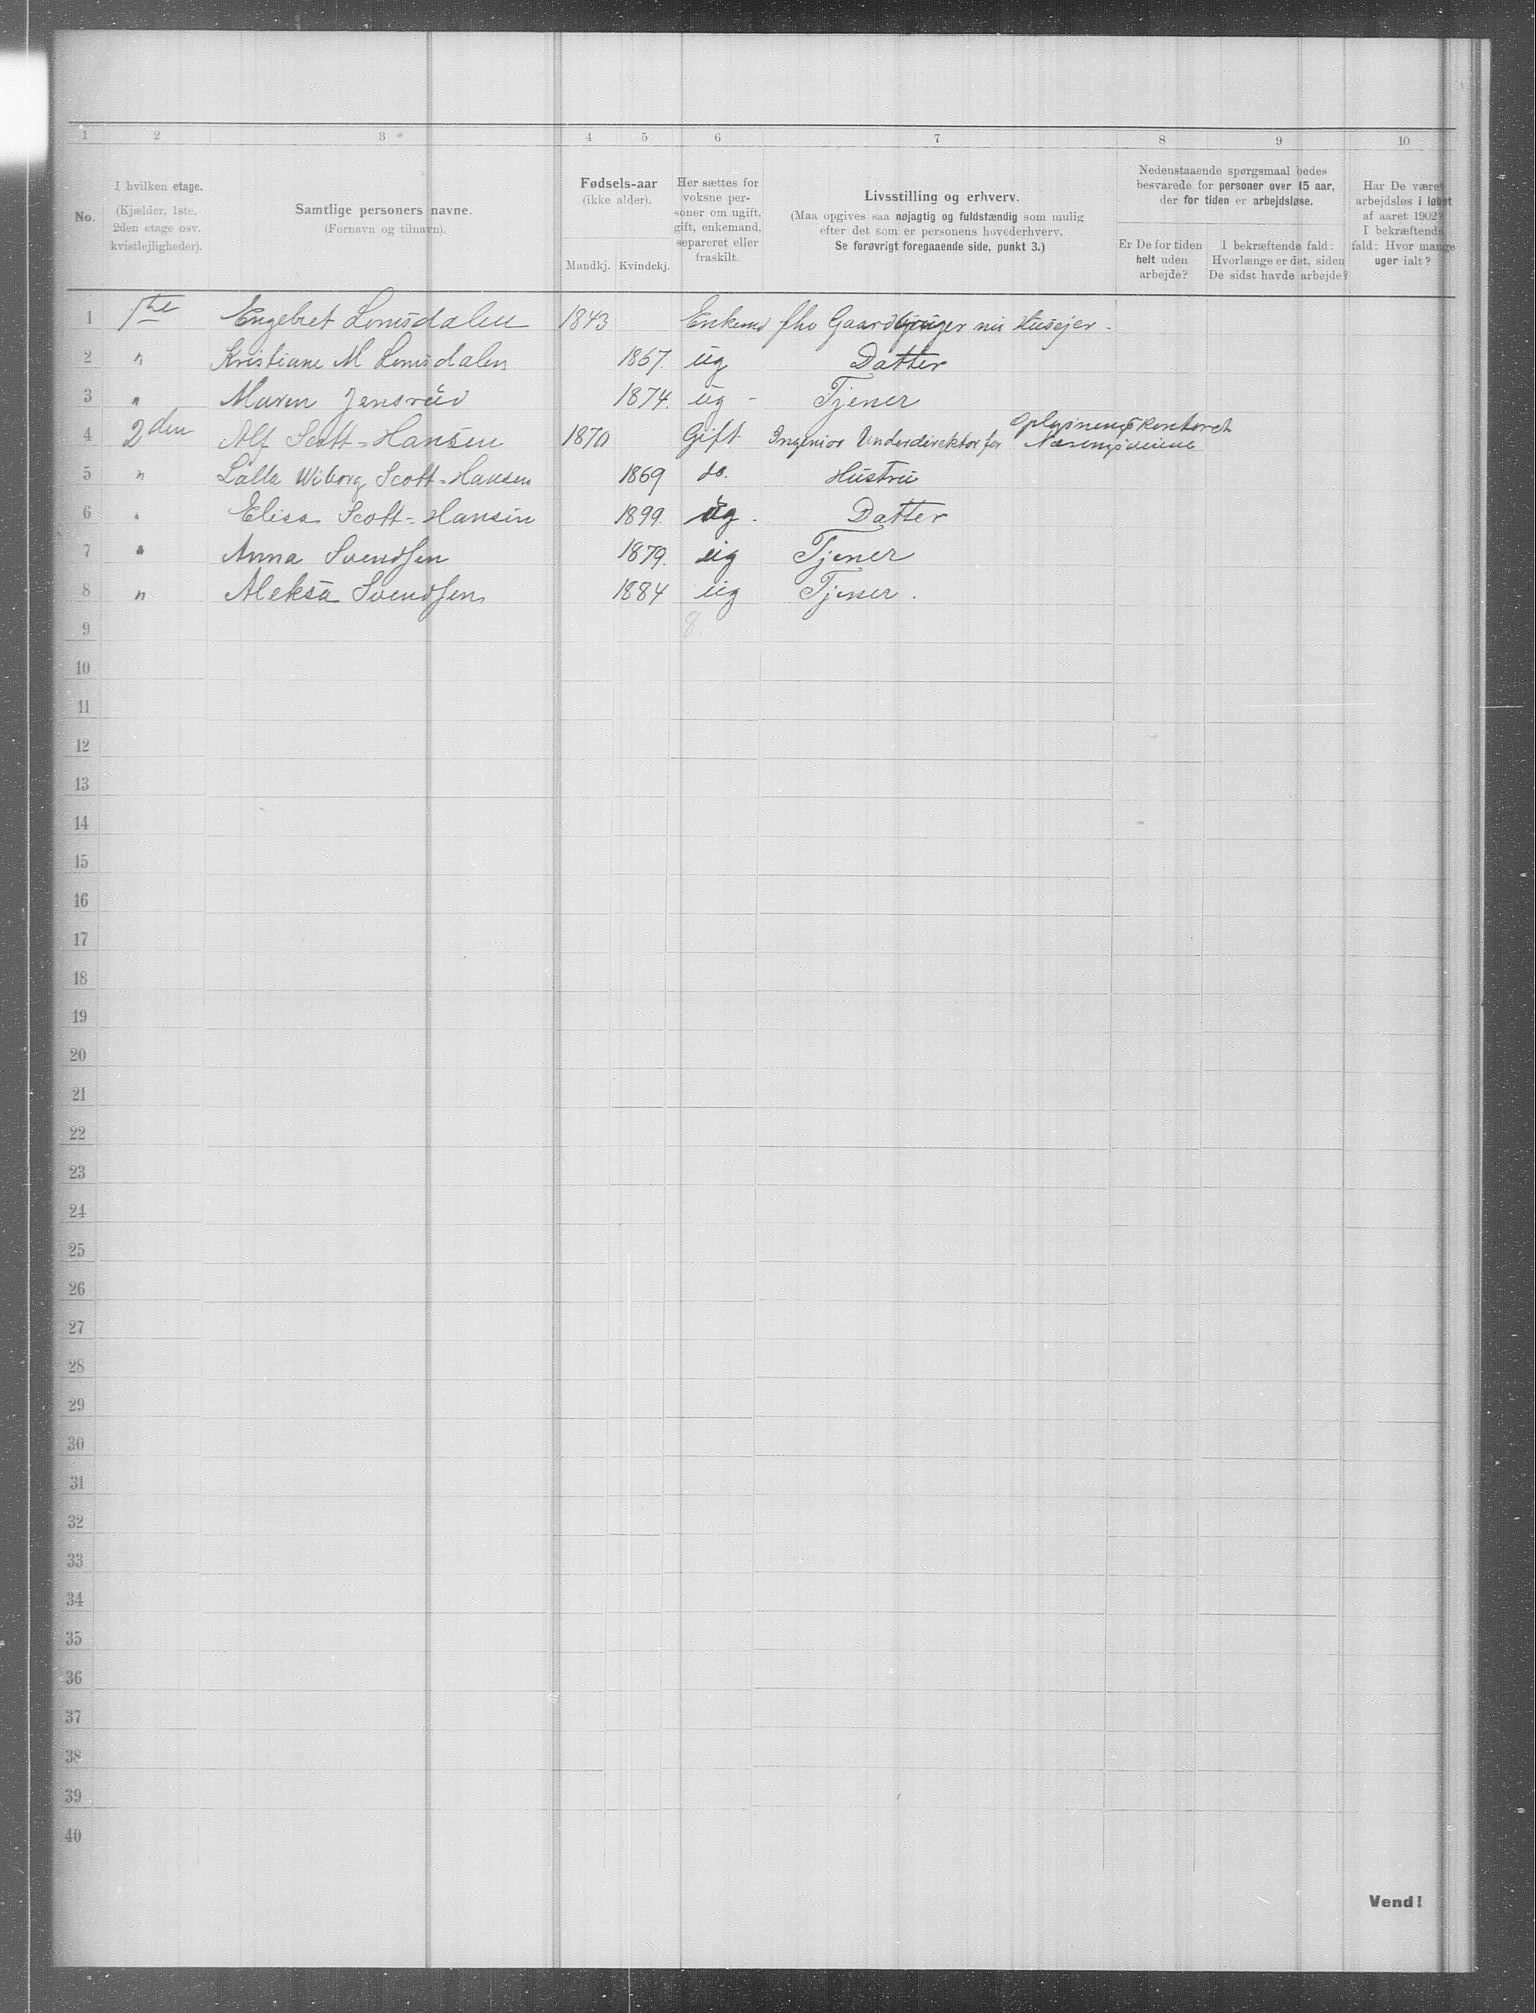 1 2 3 4 5 6 7 8 9 10
No.
I hvilken etage.
(Kjælder, 1ste,
2den etage osv.
kvistlejligheder).
Samtlige personers navne.
(Fornavn og tilnavn).
Fødsels-aar
(ikke alder).
Mandkj. Kvindekj.
Her sættes for
voksne per-
soner om ugift,
gift, enkemand,
separeret eller
fraskilt.
Livsstilling og erhverv.
(Maa opgives saa nøjagtig og fuldstændig som mulig
efter det som er personens hovederhverv.
Se forøvrigt foregaaende side, punkt 3.)
Nedenstaaende spørgsmaal bedes
besvarede for personer over 15 aar,
der for tiden er arbejdsløse.
Er De for tiden
helt uden
arbejde?
I bekræftende fald:
Hvorlænge er det, siden
De sidst havde arbejde?
Har De været
arbejdsløs i løbet
af aaret 1902?
I bekræftende
fald: Hvor mange
uger ialt?
1 1ste Engebret Lomsdalen 1843 Enkemd fho Gaardbruger nu Husejer.
2 " Kristiane M Lomsdalen 1867. ug Datter
3 " Maren Jensrud 1874. ug - Tjener
4 2den Alf Scott-Hansen 1870 Gift Ingeniør Underdirektør for Oplysningskontoret
Næringsveiene
5 " Lalla Wiborg Scott-Hansen 1869 do. Hustru
6 " Elisa Scott-Hansen 1899 ug. Datter
7 " Anna Svendsen 1879. ug Tjener
8 " Aleksa Svendsen 1884 ug Tjener.
9 8.
10
11
12
13
14
15
16
17
18
19
20
21
22
23
24
25
26
27
28
29
30
31
32
33
34
35
36
37
38
39
40
Vend!